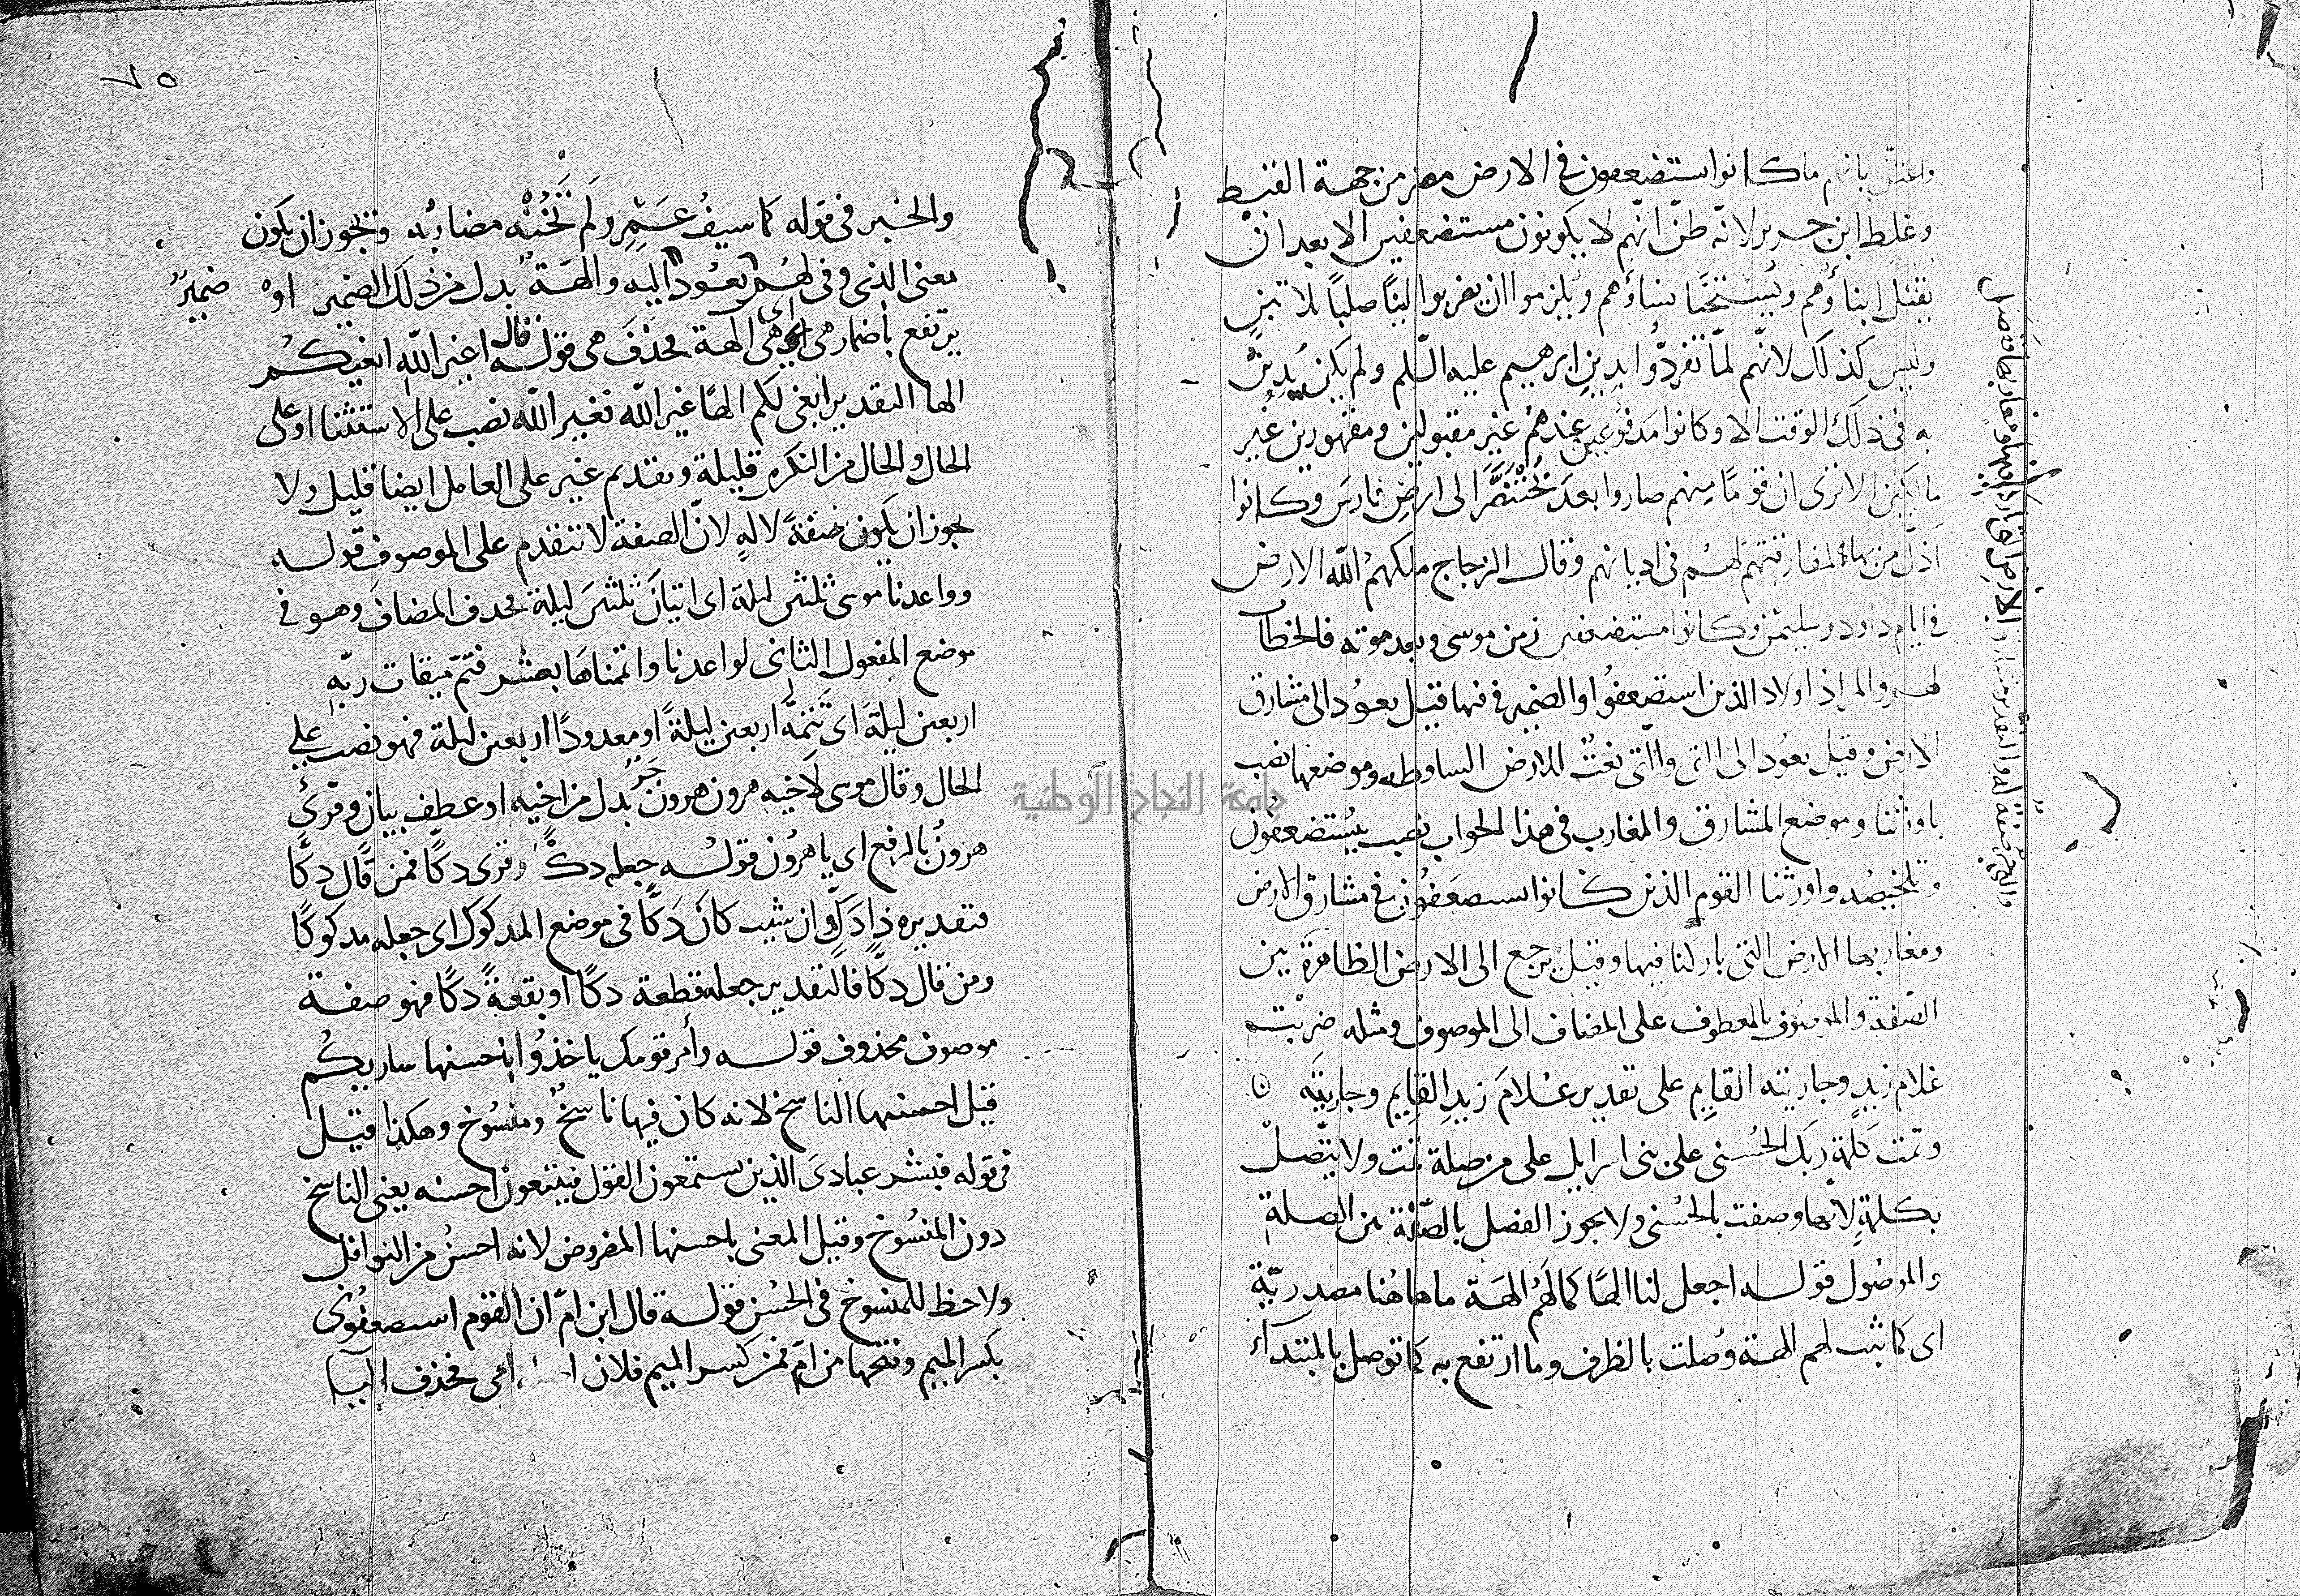 واعتل بانهم ما كانوا استضعفون في الارض مصر من جهة القبط
وغلط ابن جرير لانه ظنّ انّهم لا يكونون مستضعفين الا بعد ان
يقتل ابناؤهم ويستحيا نساؤهم ويلزموا ان يضربوا لبناً صلباً بلا تبن
وليس كذلك لانّهم لمّا تفردّوا بدين ابرهيم عليه السّلم ولم يكن يدين
به في ذلك الوقت الا وكانوا مدفوعين عندهم غير مقبولين ومقهورين غير
الا ترى ان قومًا منهم صاروا بعد بختنصّر الى ارض فارس وكانوا
اذلّ من بها لمفارقتهم لهم في اديانهم وقال الزجاج ملكهم اللّه الارض
في ايام داود وسليمن وكانوا مستضعفين زمن موسى وبعد موته فالخطاب
لهم والمراد اولاد الذين استضعفوا والضمير في فيها قيل يعود الى مشارق
الارض وقيل يعود الى التي والّتي نعت للارض وموضعها نصب
باورثنا وموضع المشارق والمغارب في هذا الجواب نصب بيستضعفون
وتلخيصه واورثنا القوم الذين كانوا يستضعفون في مشارق الارض
ومغاربها الارض التي باركنا فيها وقيل يرجع الى الارض الظاهرة بين
الصّفة والموصوف بالمعطوف على المضاف الى الموصوف ومثله ضربت
غلام زيدٍ وجاريته القايم على تقدير غلام زيدِ القايم وجاريته
وتمت كلمة ربك الحسنى على بني اسرايل على من صلة تمت ولا يتّصل
بكلمةٍ لانّها وصفت بالحسنى ولا يجوز الفصل بالصّفة بين الصلة
والموصول قوله اجعل لنا الهًا كما لهم الهة ما هاهنا مصدريّة
اى كما ثبت لهم الهة وُصلت بالظرف وما ارتفع به كما توصل بالمبتداء
٧٥
والخبر في قوله كما سيفُ عَمْرٍو لَم تَخُنْه مضاربُه ويجوز ان يكون
بمعنى الذي وفي لهم ضميرٌ يعود اليه والهة بدل من ذلك الضمير او
يرتفع باضمار هي اي هي الهة فحذف هي قوله قال اغير اللّه ابغيكم
الها التقدير ابغي لكم الهًا غير اللّه فغير اللّه نصب على الاستثنا او على
الحال والحال من النكره قليلة وتقديم غير على العامل ايضا قليل ولا
يجوز ان يكون صفةً لالهٍ لانّ الصفة لا تتقدم على الموصوف قوله
وواعدنا موسى ثلثين ليلة اى اتيان ثلثين ليلة فحذف المضاف وهو في
موضع المفعول الثاني لواعدنا واتممناها بعشر فتمّ ميقات ربّهِ
اربعين ليلةً اى تَتمّةَ اربعين ليلةً او معدودًا اربعين ليلة فهو نصب على
الحال وقال موسى لاخيه هرون هرون جَرٌّ بدل من اخيه او عطف بيان وقرئ
هرونُ بالرفع اى يا هرون قوله جعله دكًّا وقرى دكّاء فمن قال دكًّا
فتقديره ذا دَكٍّ وان شيت كان دَكًّا في موضع المدكوك اى جعله مدكوكًا
ومن قال دكّاء فالتقدير جعله قطعة دكّاء او بقعةً دكّاء فهو صفة
موصوف محذوف قوله وأمر قومك ياخذُوا باحسنها ساريكم
قيل احسنها الناسخ لانه كان فيها ناسخٌ ومنسُوخ وهكذا قيل
في قوله فبشر عبادىَ الذين يستمعون القول فيتبعون احسنه يعني الناسخ
دون المنسُوخ وقيل المعنى باحسنها المفروض لانه احسنُ من النوافل
ولا حظ للمنسوخ في الحُسْن قوله قال ابن امّ ان القوم استضعفوني
بكسر الميم وفتحها من امّ فمن كسر الميم فلان اصله امّي فحذف اليا